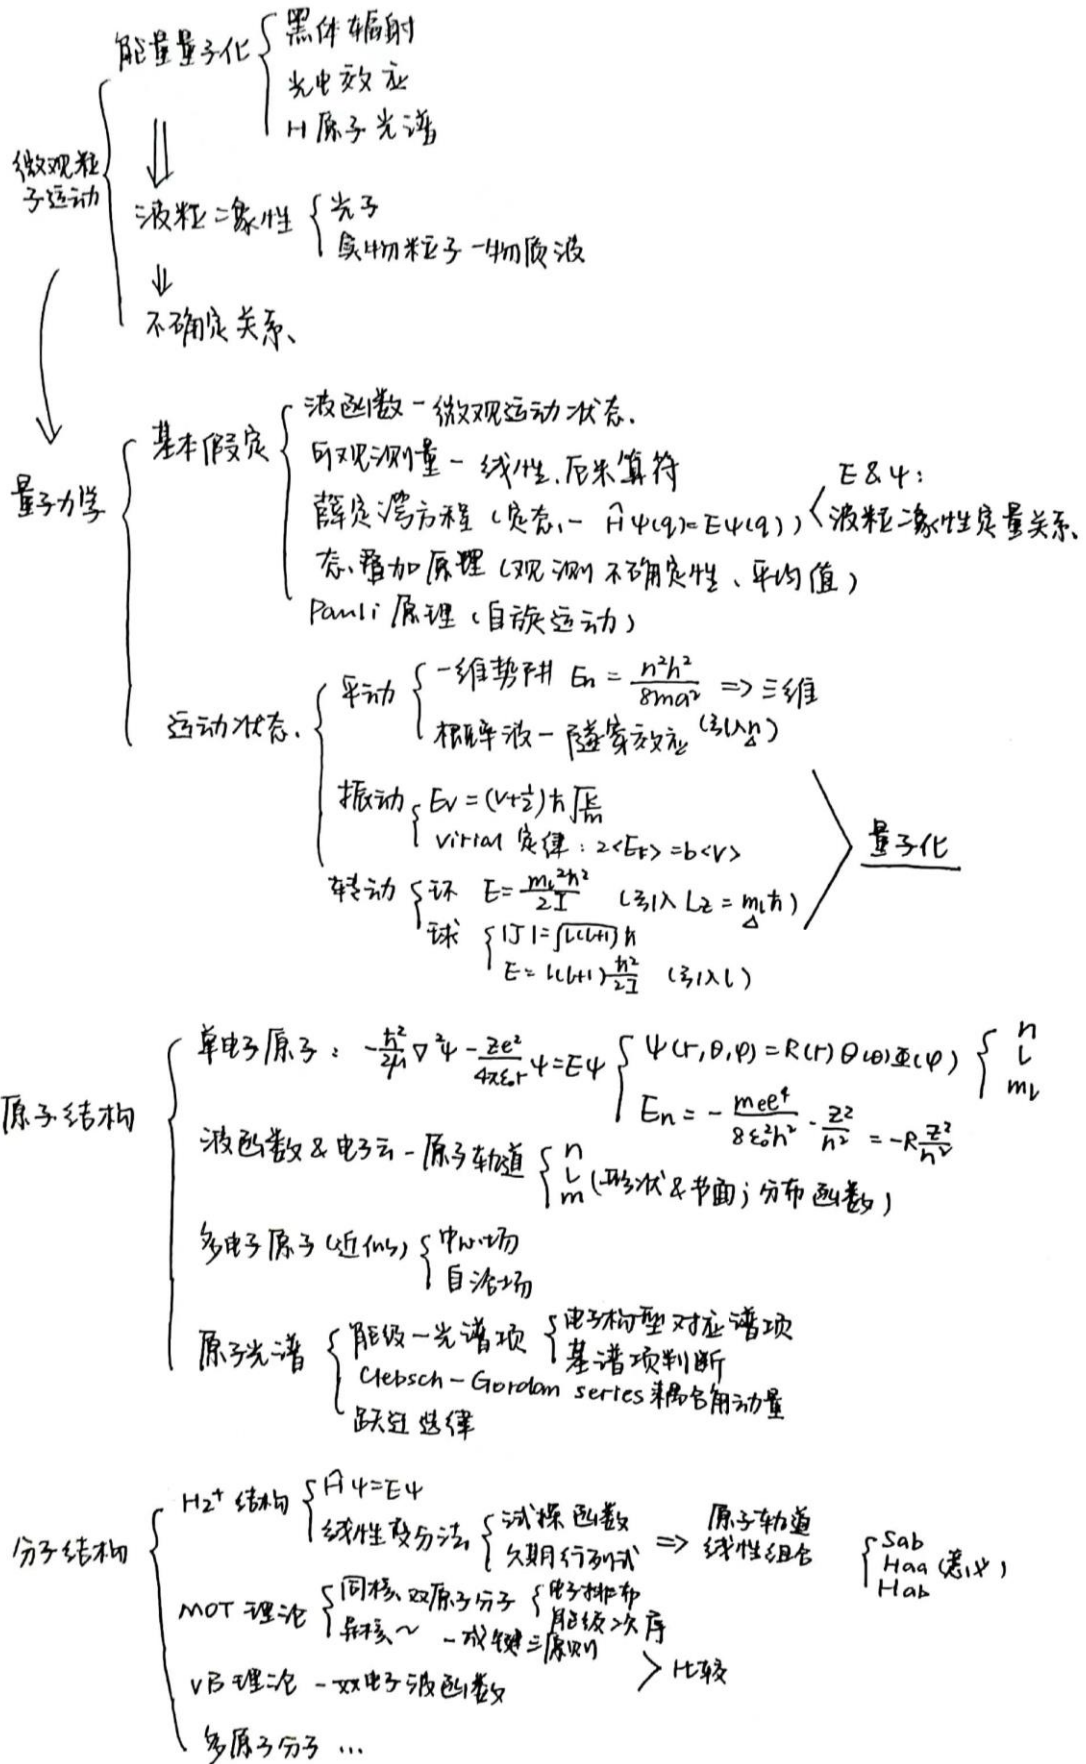 能量量子化
黑体辐射
光电效应
H原子光谱
微观粒
子运动
波粒二象性
光子
实物粒子-物质波
不确定关系
量子力学
基本假定
波函数-微观运动状态.
可观测量-线性.厄米算符
薛定谔方程(定态- Ĥψ(q)=Eψ(q))
E&ψ:
波粒二象性定量关系
态叠加原理(观测不确定性、平均值)
Pauli原理(自旋运动)
运动状态.
平动
一维势阱 En = n²h²/8ma² => 三维
概率波-隧穿效应 (引入n)
振动
Ev = (v+1/2)ħ√(k/m)
virial 定律: 2<Et> = b<V>
转动
环 E = ml²ħ²/2I (引入 Lz = mlħ)
球
|J| = √(l(l+1)) ħ
E = l(l+1) ħ²/2I (引入l)
量子化
原子结构
单电子原子: -ħ²/2μ ∇²ψ - Ze²/4πε₀r ψ = Eψ
ψ(r,θ,φ) = R(r)Θ(θ)Φ(φ)
n
l
ml
En = - mee⁴/8ε₀²h² · Z²/n² = -R Z²/n²
波函数&电子云-原子轨道
n
l
m (形状&节面; 分布函数)
多电子原子(近似)
中心场
自洽场
原子光谱
能级-光谱项
电子构型对应谱项
基谱项判断
Clebsch-Gordan series 耦合角动量
跃迁选律
分子结构
H2⁺结构
Ĥψ=Eψ
线性变分法
试探函数
久期行列式
=> 原子轨道
线性组合
Sab
Haa (意义)
Hab
MOT理论
同核双原子分子
电子排布
能级次序
异核~ -成键三原则
VB理论 -双电子波函数
> 比较
多原子分子 ...